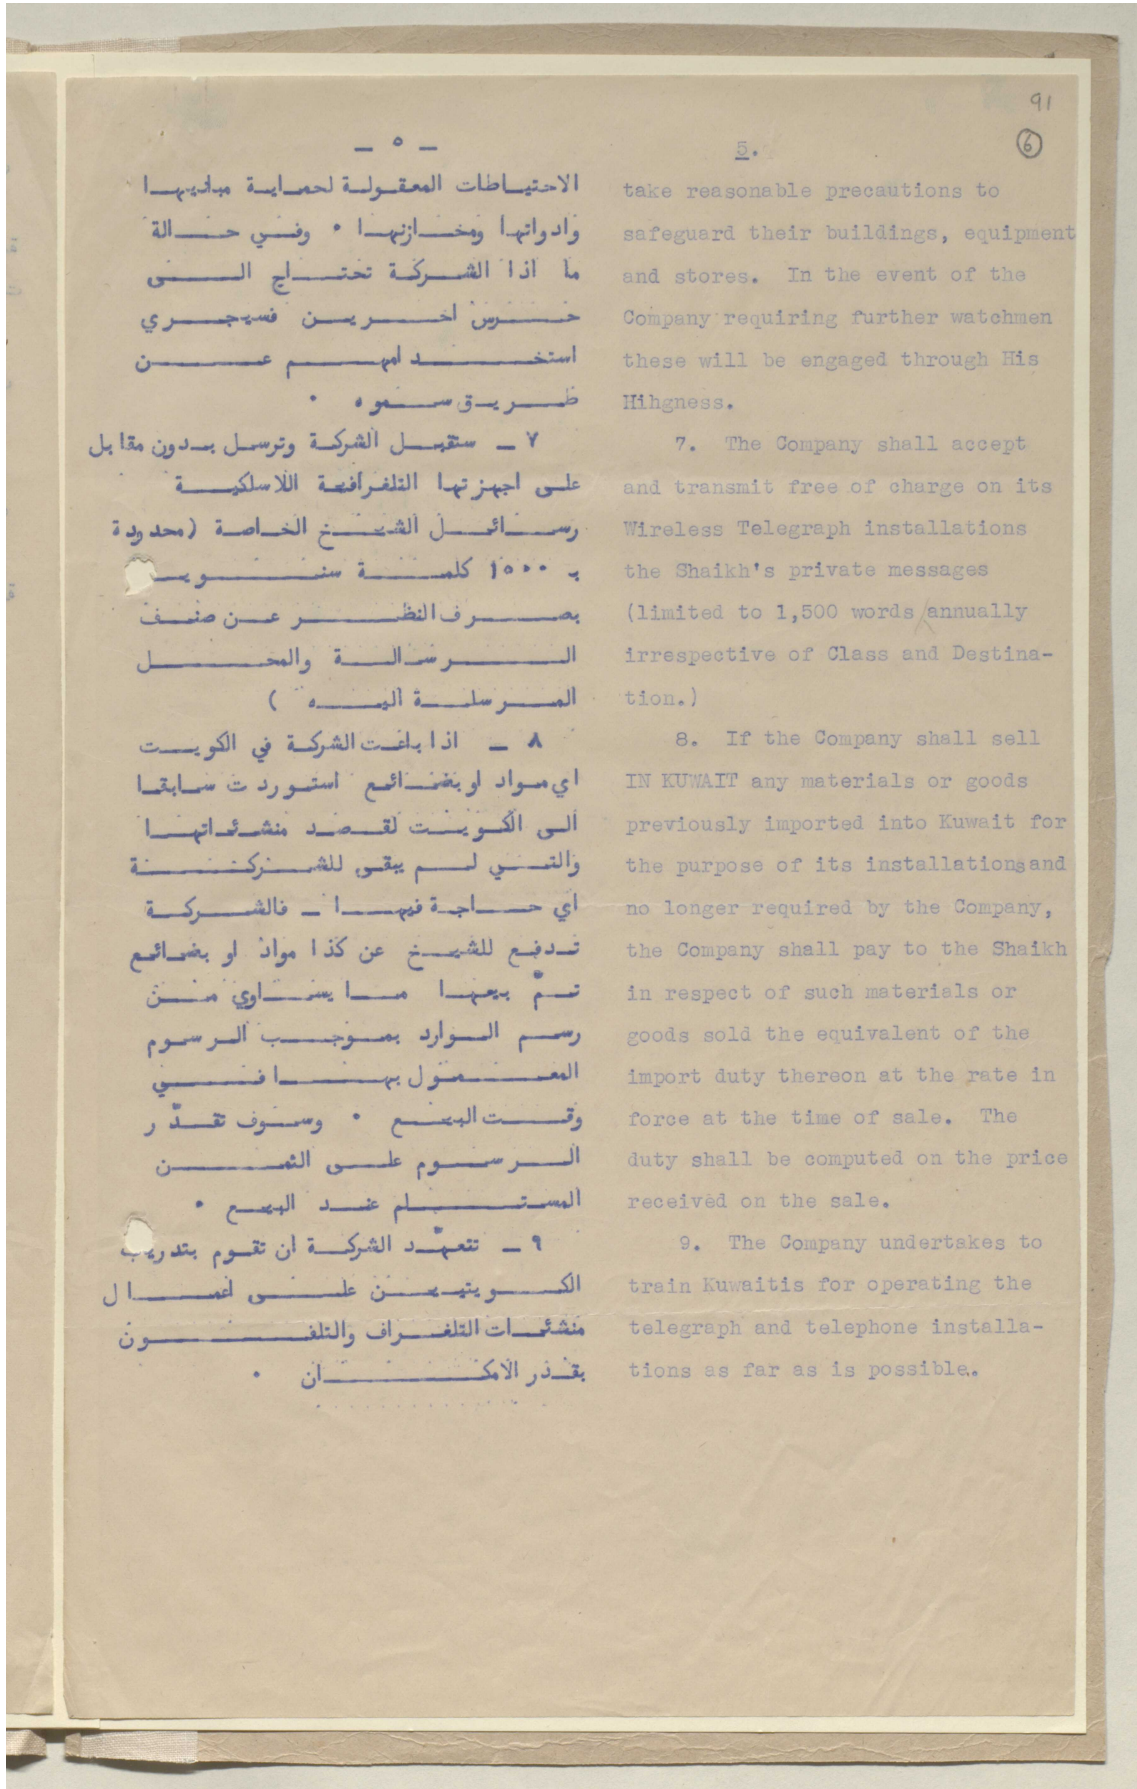 91
6
5.
take reasonable precautions to
safeguard their buildings, equipment
and stores. In the event of the
Company requiring further watchmen
these will be engaged through His
Hihgness.
7. The Company shall accept
and transmit free of charge on its
Wireless Telegraph installations
the Shaikh's private messages
(limited to 1,500 words annually
irrespective of Class and Destina-
tion.)
8. If the Company shall sell
IN KUWAIT any materials or goods
previously imported into Kuwait for
the purpose of its installations and
no longer required by the Company,
the Company shall pay to the Shaikh
in respect of such materials or
goods sold the equivalent of the
import duty thereon at the rate in
force at the time of sale. The
duty shall be computed on the price
received on the sale.
9. The Company undertakes to
train Kuwaitis for operating the
telegraph and telephone installa-
tions as far as is possible.
_ ٥ _
الاحتياطات المعقولة لحماية مبانيها
وادواتها ومخازنها ٠ وفي حالة
ما اذا الشركة تحتاج الى
حرس اخرين فسيجري
استخدامهم عن
طريق سموه ٠
٧ _ ستقبل الشركة وترسل بدون مقابل
على اجهزتها التلغرافية اللاسلكية
رسائل الشيخ الخاصة (محدودة
بـ ١٥٠٠ كلمة سنويـ
بصرف النظر عن صنف
الرسالة والمحل
المرسلة اليه )
٨ _ اذا باعت الشركة في الكويت
اي مواد او بضائع استوردت سابقا
الى الكويت لقصد منشئاتها
والتي لم يبقى للشركة
اي حاجة فيها _ فالشركة
تدفع للشيخ عن كذا مواد او بضائع
تمّ بيعها ما يساوي من
رسم الوارد بموجب الرسوم
المعمول بها في
وقت البيع ٠ وسوف تقدّر
الرسوم على الثمن
المستلم عند البيع ٠
٩ _ تتعهّد الشركة ان تقوم بتدريب
الكويتيين على اعمال
منشئات التلغراف والتلفون
بقدر الامكان ٠